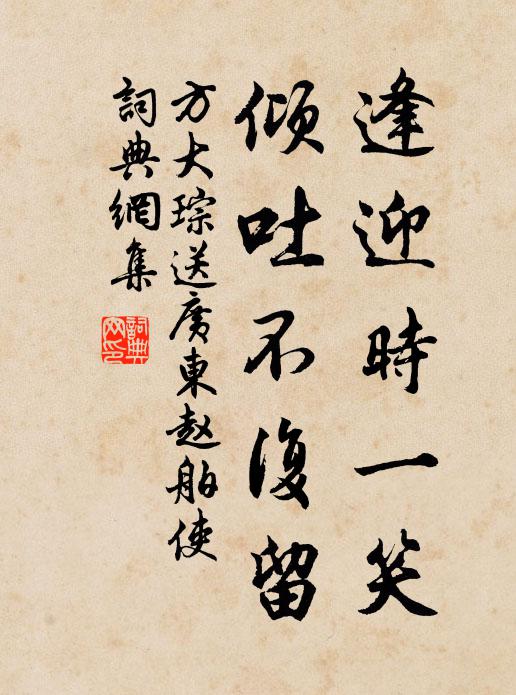 逢迎時一笑
傾吐不復留
方大琮送廣東趙舶使
詞典網集
詞典網印